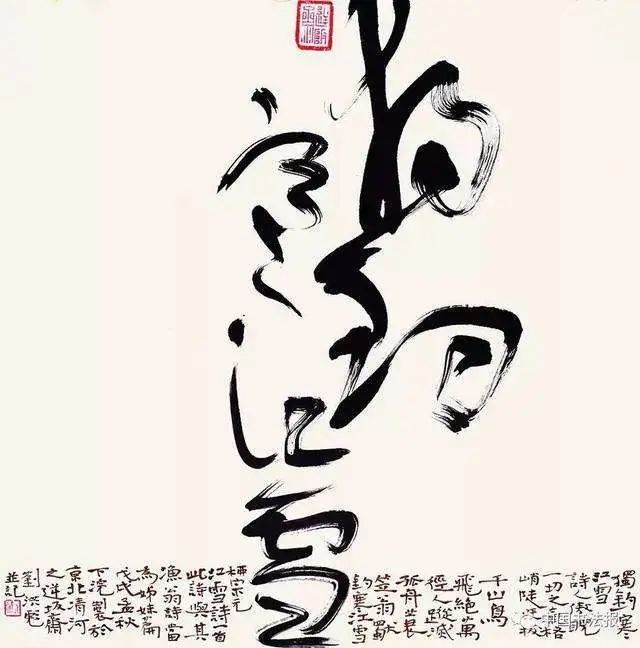 獨釣
寒江雪
獨釣寒
江雪
詩人傲睨
一切之格
峭拔
千山鳥
飛絕萬
徑人蹤滅
孤舟蓑
笠翁獨
釣寒江雪
柳宗元
江雪詩一首
此詩與其
漁翁詩當
為姊妹篇
戊戌孟秋
下浣製於
京北清河
之逆坂齋
劉洪彪
並記
中国书法报